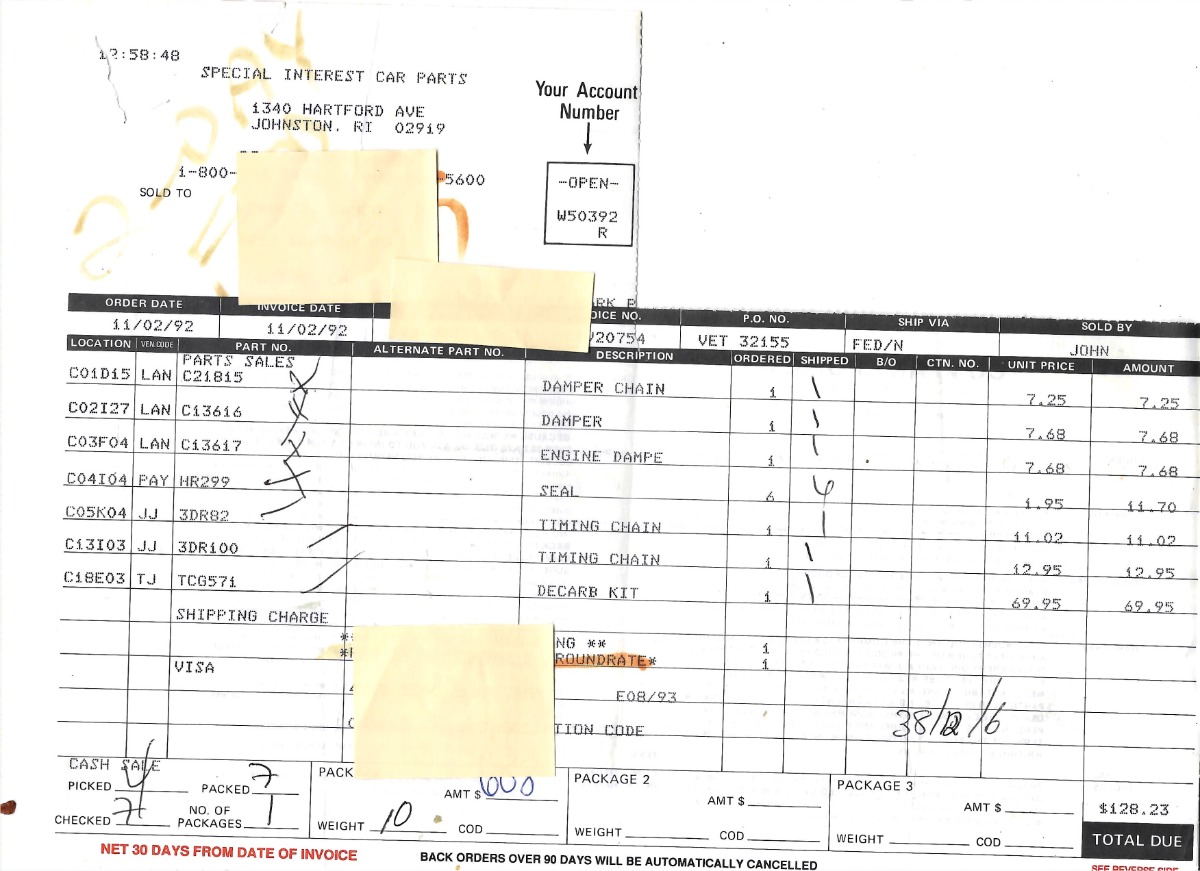 12:58:48
SPECIAL INTEREST CAR PARTS
1340 HARTFORD AVE
JOHNSTON, RI 02919
Your Account
Number
1-800-
5600
SOLD TO
-OPEN-
W50392
R
ORDER DATE INVOICE DATE OICE NO. P.O. NO. SHIP VIA SOLD BY
11/02/92 11/02/92 20754 VET 32155 FED/N JOHN
LOCATION VEN.CODE PART NO. ALTERNATE PART NO. DESCRIPTION ORDERED SHIPPED B/O CTN. NO. UNIT PRICE AMOUNT
PARTS SALES
C01D15 LAN C21815 DAMPER CHAIN 1 1 7.25 7.25
C02I27 LAN C13616 DAMPER 1 1 7.68 7.68
C03F04 LAN C13617 ENGINE DAMPE 1 1 7.68 7.68
C04I04 PAY HR299 SEAL 6 1.95 11.70
C05K04 JJ 3DR82 TIMING CHAIN 1 1 11.02 11.02
C13I03 JJ 3DR100 TIMING CHAIN 1 1 12.95 12.95
C18E03 TJ TCG571 DECARB KIT 1 1 69.95 69.95
SHIPPING CHARGE
** NG ** 1
* ROUNDRATE* 1
VISA
E08/93
TION CODE
38/12/6
CASH SALE
PICKED 4 PACKED 7
CHECKED 7 NO. OF PACKAGES 1
PACK
AMT $
WEIGHT 10 COD
PACKAGE 2
AMT $
WEIGHT COD
PACKAGE 3
AMT $
WEIGHT COD
$128.23
TOTAL DUE
NET 30 DAYS FROM DATE OF INVOICE
BACK ORDERS OVER 90 DAYS WILL BE AUTOMATICALLY CANCELLED
SEE REVERSE SIDE